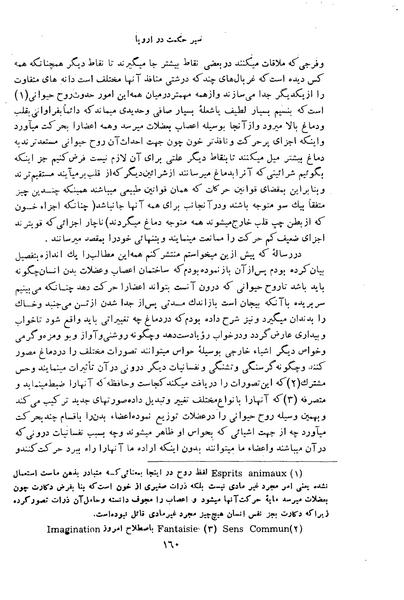 سیر حکمت در اروپا
وفرجی که ملاقات میکنند در بعضی نقاط بیشتر جا میگیرند تا نقاط دیگر همچنانکه همه
کس دیده است که غربال‌های چند که درشتی منافذ آنها مختلف است دانه های متفاوت
را از یکدیگر جدا می‌سازند و از همه مهمتر در میان همه این امور حدوث روح حیوانی (۱)
است که بنسیم بسیار لطیف یا شعلهٔ بسیار صافی و حدیدی میماند که دائماً بفراوانی بقلب
و دماغ بالا میرود و از آنجا بوسیله اعصاب بعضلات میرسد و همه اعضا را بحرکت میآورد
و اینکه اجزای پرحرکت و نافذتر خون چون جهت احداث آن روح حیوانی مستعدترند به
دماغ بیشتر میل میکنند تا بنقاط دیگر علتی برای آن لازم نیست فرض کنیم جز اینکه
بگوئیم شرائینی که آنرا بدماغ میرسانند از شرائین دیگر که از قلب برمیآیند مستقیم‌ترند
و بنابراین بمقضای قوانین حرکات که همان قوانین طبیعی میباشند همینکه چندین چیز
متفقاً بیک سو متوجه باشند و در آنجانب برای همه آنها جا نباشد (چنانکه اجزاء خون
که از بطن چپ قلب خارج میشوند همه متوجه دماغ میگردند) ناچار اجزائی که قویترند
اجزای ضعیف کم حرکت را ممانعت مینمایند و بتنهائی خود را بمقصد میرسانند.
در رسالهٔ که پیش از این میخواستم منتشر کنم همه این مطالب را یك اندازه بتفصیل
بیان کرده بودم پس از آن باز نموده بودم که ساختمان اعصاب و عضلات بدن انسان چگونه
باید باشد تا روح حیوانی که درون آنست بتواند اعضا را حرکت دهد چنانکه می‌بینیم
سر بریده با آنکه بیجان است باز اندك مدتی پس از جدا شدن از تن می‌جنبد و خاك
را بدندان میگیرد و نیز شرح داده بودم که در دماغ چه تغییراتی باید واقع شود تا خواب
و بیداری عارض گردد و در خواب رؤیا دست دهد و چگونه روشنی و آواز و بو و مزه و گرمی
و خواص دیگر اشیاء خارجی بوسیلهٔ حواس میتوانند تصورات مختلف را در دماغ مصور
کنند و چگونه گرسنگی و تشنگی و نفسانیات دیگر درونی در آن تأثیرات مینمایند و حس
مشترك (۲) که این تصورات را دریافت میکند کجاست و حافظه که آنها را ضبط مینماید و
متصرفه (۳) که آنها را بانواع مختلف تغییر و تبدیل داده صورتهای جدید ترکیب می کند
و بهمین وسیله روح حیوانی را در عضلات توزیع نموده اعضاء بدن را باقسام چند بحرکت
میآورد چه از جهت اشیائی که بحواس او ظاهر میشوند و چه بسبب نفسانیات درونی که
در آن میباشند و اعضاء ما میتوانند بدون اینکه اراده ما آنها را ببرد حرکت کنند و
(۱) Esprits animaux لفظ روح در اینجا بمعنائی که متبادر بذهن ماست استعمال
نشده یعنی امر مجرد غیر مادی نیست بلکه ذرات صغیری از خون است که بنا بفرض دکارت چون
بعضلات میرسد مایهٔ حرکت آنها میشود و اعصاب را مجوف دانسته و حامل آن ذرات تصور کرده
زیرا که دکارت بجز نفس انسان هیچ چیز مجرد غیرمادی قائل نبوده است.
(۲) Sens Commun (۳) Fantaisie باصطلاح امروز Imagination
۱۶۰